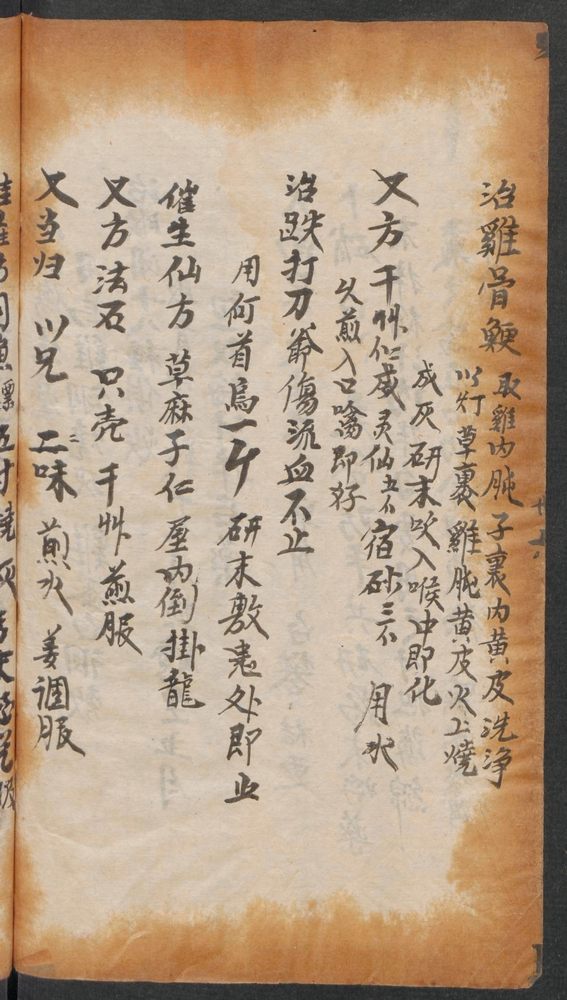 治雞骨鯁 取雞內肫子裏內黄皮洗净
以灯草裹雞肫黄皮火上燒
成灰研末吹入喉中即化
又方 干艸仁 威灵仙五不 宿砂三不 用水
火煎入口嗡即好
治跌打刀爷傷流血不止
用何首烏一个 研末敷患处即止
催生仙方 草麻子仁 屋內倒掛龍
又方 法石 只壳 干艸 煎服
又当归 川兄 二味 煎火 姜調服